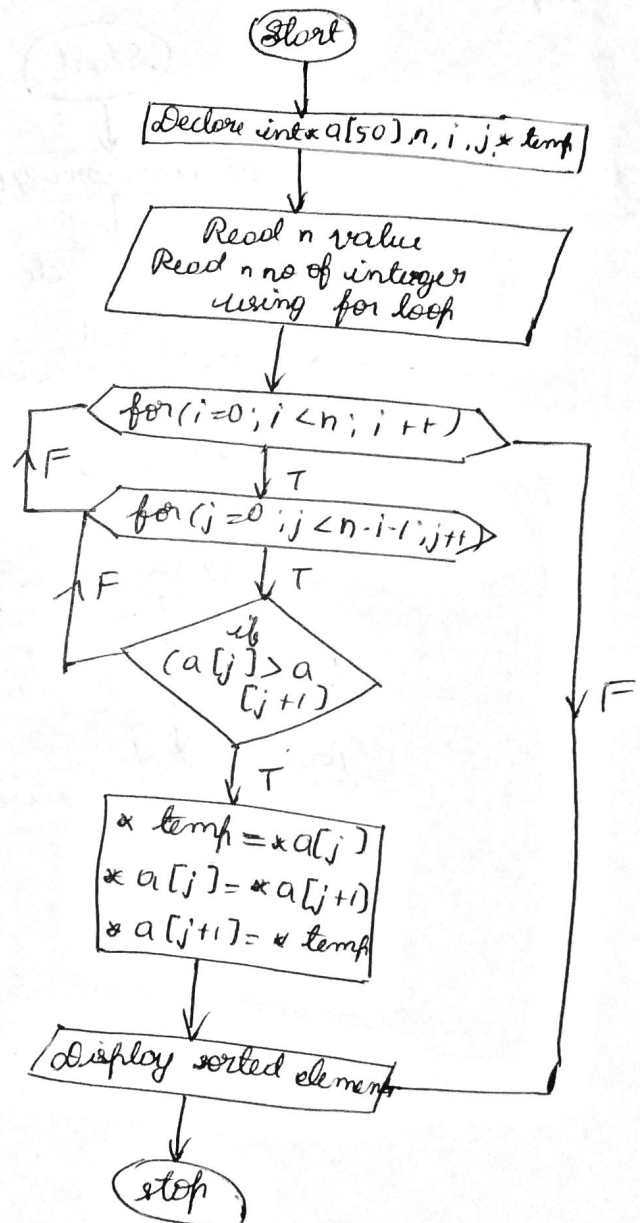 Start
Declare int * a[50], n, i, j, * temp
Read n value
Read n no of interger
using for loop
for(i=0; i<n; i++)
F
T
for(j=0; j<n-i-1; j++)
F
T
if
(a[j]>a
[j+1)
F
T
* temp = * a[j)
* a[j] = * a[j+1)
* a[j+1] = * temp
Display sorted element
stop